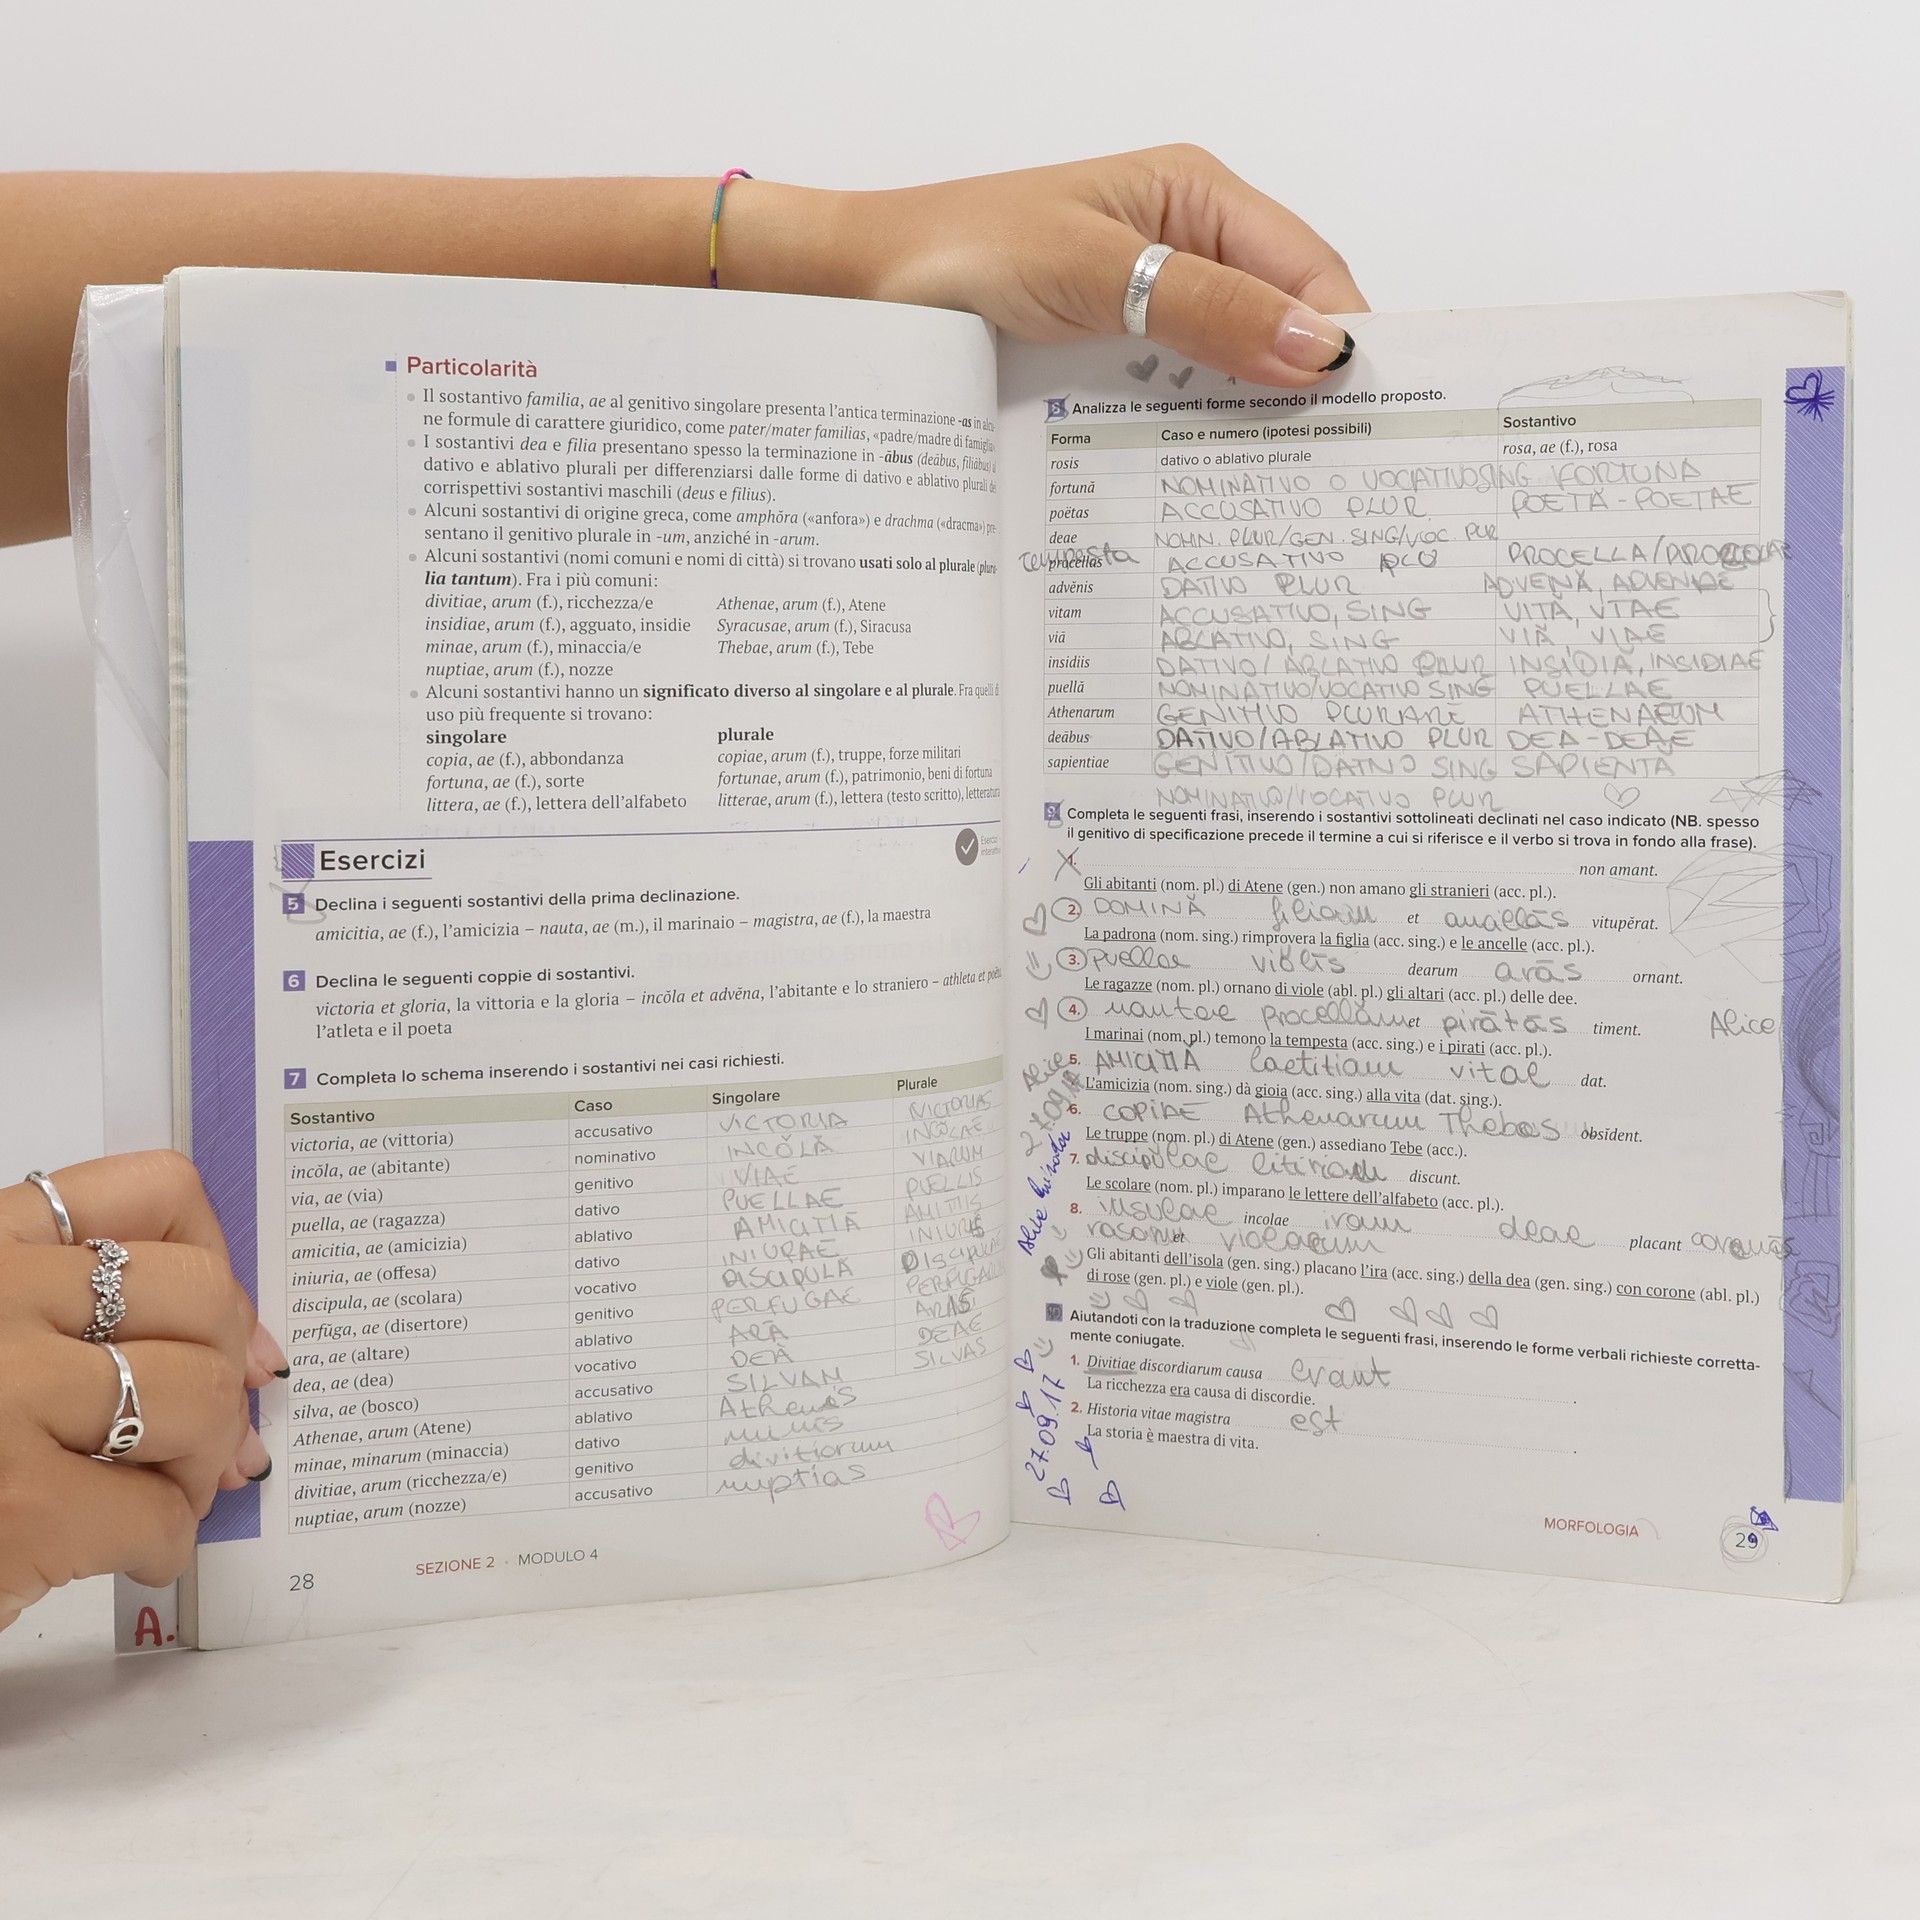 Particolarità
Il sostantivo familia, ae al genitivo singolare presenta l'antica terminazione -as in
ne formule di carattere giuridico, come pater/mater familias, «padre/madre di famiglia».
I sostantivi dea e filia presentano spesso la terminazione in -ābus (deābus, filiābus)
dativo e ablativo plurali per differenziarsi dalle forme di dativo e ablativo plurali
corrispettivi sostantivi maschili (deus e filius).
Alcuni sostantivi di origine greca, come amphŏra («anfora») e drachma («dracma») pre-
sentano il genitivo plurale in -um, anziché in -arum.
Alcuni sostantivi (nomi comuni e nomi di città) si trovano usati solo al plurale (plura-
lia tantum). Fra i più comuni:
divitiae, arum (f.), ricchezza/e Athenae, arum (f.), Atene
insidiae, arum (f.), agguato, insidie Syracusae, arum (f.), Siracusa
minae, arum (f.), minaccia/e Thebae, arum (f.), Tebe
nuptiae, arum (f.), nozze
Alcuni sostantivi hanno un significato diverso al singolare e al plurale. Fra quelli di
uso più frequente si trovano:
singolare plurale
copia, ae (f.), abbondanza copiae, arum (f.), truppe, forze militari
fortuna, ae (f.), sorte fortunae, arum (f.), patrimonio, beni di fortuna
littera, ae (f.), lettera dell'alfabeto litterae, arum (f.), lettera (testo scritto), letteratura
Esercizi
5 Declina i seguenti sostantivi della prima declinazione.
amicitia, ae (f.), l'amicizia – nauta, ae (m.), il marinaio – magistra, ae (f.), la maestra
6 Declina le seguenti coppie di sostantivi.
victoria et gloria, la vittoria e la gloria – incŏla et advĕna, l'abitante e lo straniero – athleta et poëta
l'atleta e il poeta
7 Completa lo schema inserendo i sostantivi nei casi richiesti.
Sostantivo Caso Singolare Plurale
victoria, ae (vittoria) accusativo VICTORIA VICTORIAS
incŏla, ae (abitante) nominativo INCŎLĂ INCŎLAE
via, ae (via) genitivo VIAE VIARUM
puella, ae (ragazza) dativo PUELLAE PUELLIS
amicitia, ae (amicizia) ablativo AMICITIĀ AMITIIS
iniuria, ae (offesa) dativo INIURAE INIURIS
discipula, ae (scolara) vocativo DISCIPULĂ DISCIPULAE
perfŭga, ae (disertore) genitivo PERFUGAE PERFUGARUM
ara, ae (altare) ablativo ARĀ
dea, ae (dea) vocativo DEĂ DEAE
silva, ae (bosco) accusativo SILVAM SILVAS
Athenae, arum (Atene) ablativo
minae, minarum (minaccia) dativo
divitiae, arum (ricchezza/e) genitivo divitiarum
nuptiae, arum (nozze) accusativo nuptias
28 SEZIONE 2 · MODULO 4
A.
8 Analizza le seguenti forme secondo il modello proposto.
Forma Caso e numero (ipotesi possibili) Sostantivo
rosis dativo o ablativo plurale rosa, ae (f.), rosa
fortună NOMINATIVO O VOCATIVO SING FORTUNĂ
poëtas ACCUSATIVO PLUR POETĂ - POETAE
deae NOMIN. PLUR/GEN. SING/VOC. PUR
Tempesta procellas ACCUSATIVO PLU PROCELLA/
advĕnis DATIVO PLUR ADVENĂ, ADVENAE
vitam ACCUSATIVO, SING VITĂ, VITAE
viā ABLATIVO, SING VIĂ, VIAE
insidiis DATIVO/ABLATIVO PLUR INSIDIĂ, INSIDIAE
puellă NOMINATIVO/VOCATIVO SING PUELLAE
Athenarum GENITIVO PLURARE
deābus DATIVO/ABLATIVO PLUR DEA-DEAE
sapientiae GENITIVO/DATIVO SING SAPIENTA
NOMINATIVO/VOCATIVO PLUR
9 Completa le seguenti frasi, inserendo i sostantivi sottolineati declinati nel caso indicato (NB. spesso
il genitivo di specificazione precede il termine a cui si riferisce e il verbo si trova in fondo alla frase).
1. non amant.
Gli abitanti (nom. pl.) di Atene (gen.) non amano gli stranieri (acc. pl.).
2. DOMINĂ filiam et ancellās vitupĕrat.
La padrona (nom. sing.) rimprovera la figlia (acc. sing.) e le ancelle (acc. pl.).
3. puellae violīs dearum arās ornant.
Le ragazze (nom. pl.) ornano di viole (abl. pl.) gli altari (acc. pl.) delle dee.
4. nautae procellăm et pirātās timent. Alice
I marinai (nom. pl.) temono la tempesta (acc. sing.) e i pirati (acc. pl.).
5. AMICITIĂ laetitiam vitae dat.
L'amicizia (nom. sing.) dà gioia (acc. sing.) alla vita (dat. sing.).
6. COPIAE Athenarum Thebas obsĭdent.
Le truppe (nom. pl.) di Atene (gen.) assediano Tebe (acc.).
7. discipulae discunt.
Le scolare (nom. pl.) imparano le lettere dell'alfabeto (acc. pl.).
8. insulae incolae iram deae placant
rosarum et violarum
Gli abitanti dell'isola (gen. sing.) placano l'ira (acc. sing.) della dea (gen. sing.) con corone (abl. pl.)
di rose (gen. pl.) e viole (gen. pl.).
10 Aiutandoti con la traduzione completa le seguenti frasi, inserendo le forme verbali richieste corretta-
mente coniugate.
1. Divitiae discordiarum causa erant
La ricchezza era causa di discordie.
2. Historia vitae magistra est
La storia è maestra di vita.
Alice
27.09.17
MORFOLOGIA 29